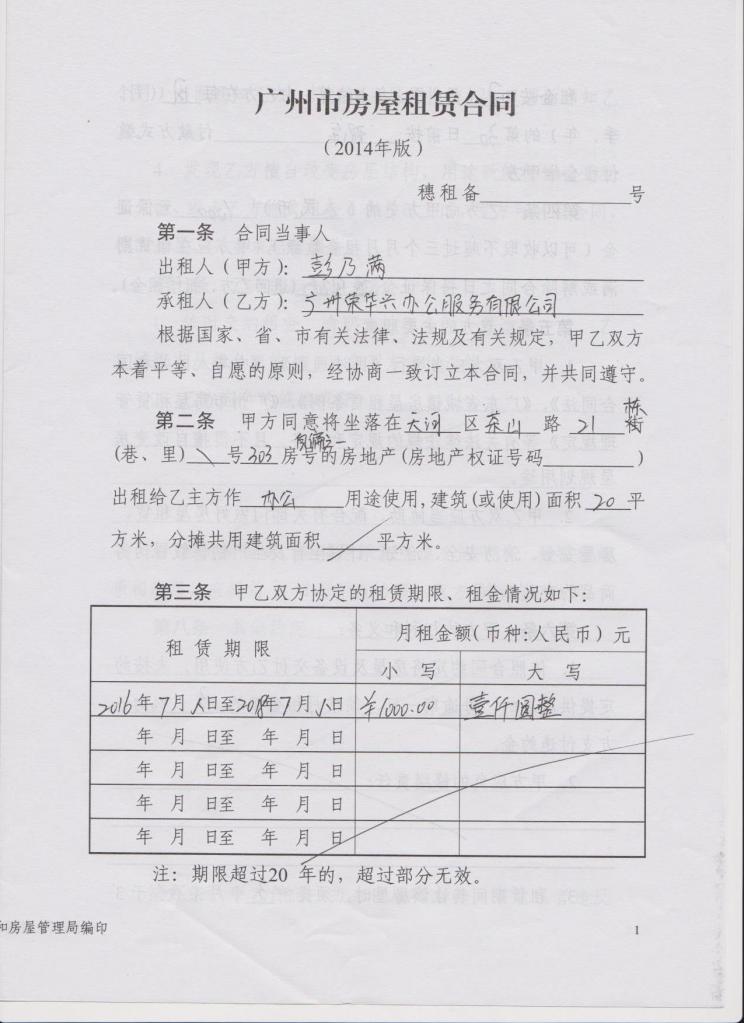 广州市房屋租赁合同
（2014年版）
穗租备 号
第一条 合同当事人
出租人（甲方）：彭乃满
承租人（乙方）：广州荣华兴办公服务有限公司
根据国家、省、市有关法律、法规及有关规定，甲乙双方
本着平等、自愿的原则，经协商一致订立本合同，并共同遵守。
第二条 甲方同意将坐落在天河区茶山路21栋街
(巷、里) \ 号303自编之一房号的房地产(房地产权证号码 )
出租给乙主方作办公用途使用,建筑(或使用)面积20平
方米，分摊共用建筑面积 平方米。
第三条 甲乙双方协定的租赁期限、租金情况如下：
租赁期限 月租金额(币种:人民币) 元
小写 大写
2016年7月 日至2018年7月 日 ¥1000.00 壹仟圆整
年 月 日至 年 月 日
年 月 日至 年 月 日
年 月 日至 年 月 日
年 月 日至 年 月 日
注：期限超过20 年的，超过部分无效。
和房屋管理局编印 1